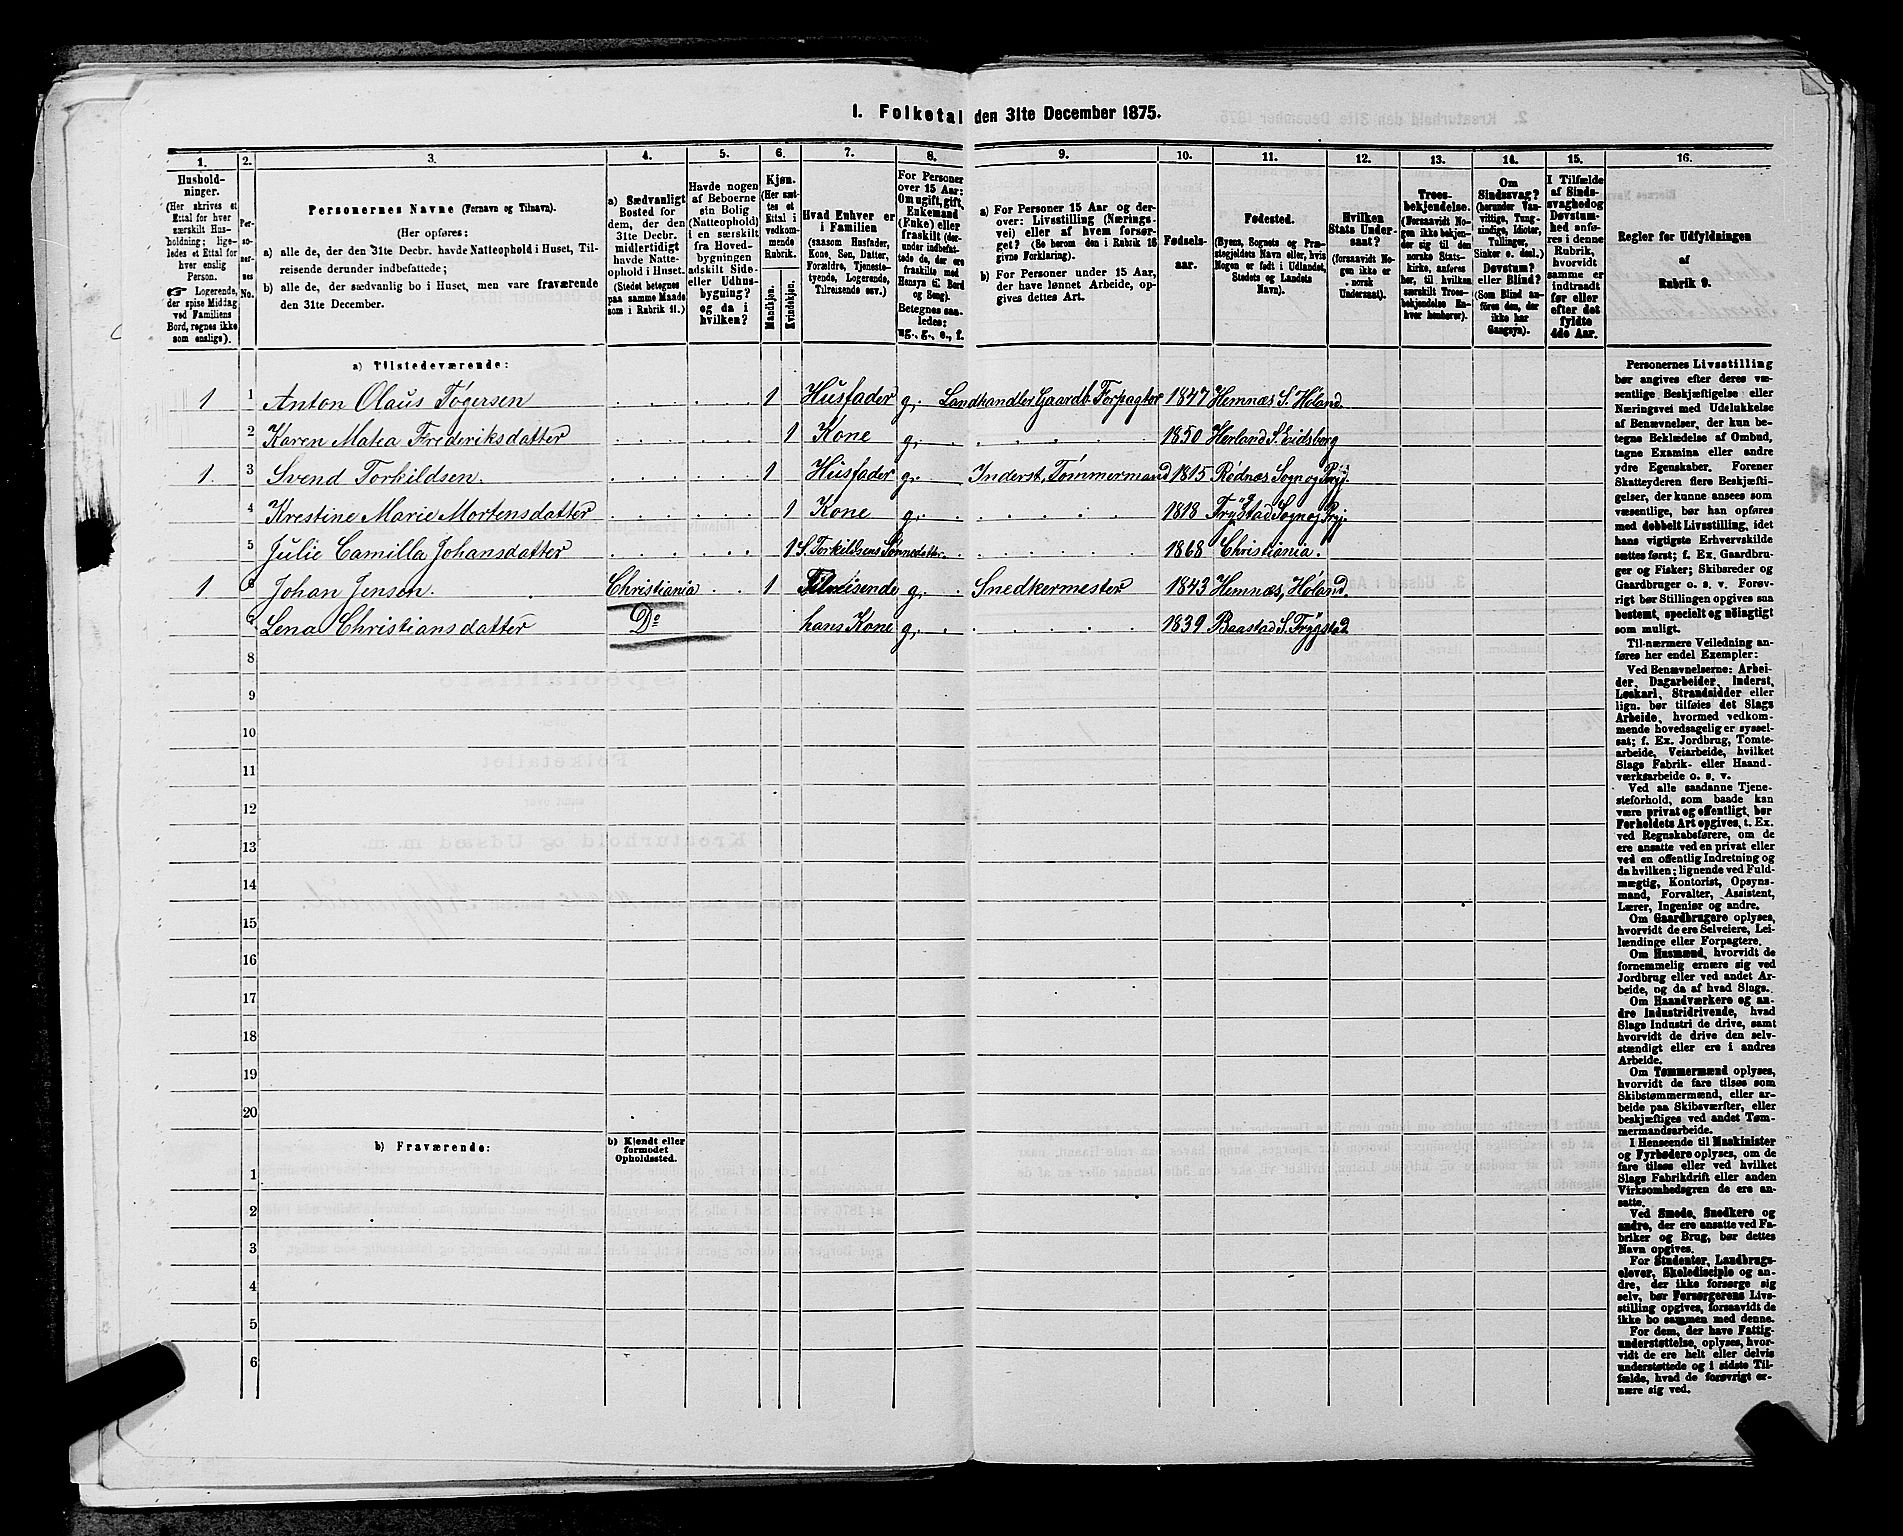 I. Folketal den 31te December 1875.
1. 2. 3. 4. 5. 6. 7. 8. 9. 10. 11. 12. 13. 14. 15. 16.
Husholdninger.
(Her skrives et
Ettal for hver
særskilt Husholdning;
ligeledes et Ettal for
hver enslig
Person.
☞ Logerende,
der spise Middag
ved Familiens
Bord, regnes ikke
som enslige).
Personernes No.
Personernes Navne (Fornavn og Tilnavn).
(Her opføres:
a) alle de, der den 31te Decbr. havde Natteophold i Huset, Tilreisende derunder indbefattede;
b) alle de, der sædvanlig bo i Huset, men vare fraværende
den 31te December.
a) Sædvanligt
Bosted for
dem, der den
31te Decbr.
midlertidigt
havde Natteophold i Huset.
(Stedet betegnes
paa samme Maade
som i Rubrik 11.)
Havde nogen
af Beboerne
sin Bolig
(Natteophold)
i en særskilt
fra Hovedbygningen
adskilt Side-
eller Udhusbygning?
og da i
hvilken?
Kjøn.
(Her sættes et
Ettal i
vedkommende
Rubrik.
Mandkjøn.
Kvindekjøn.
Hvad Enhver er
i Familien
(saasom Husfader,
Kone, Søn, Datter,
Forældre, Tjenestetyende, Logerende,
Tilreisende osv.)
For Personer
over 15 Aar:
Om ugift, gift,
Enkemand
(Enke) eller
fraskilt (derunder indbefattede de, der ere
fraskilte med
Hensyn til Bord
og Seng).
Betegnes saaledes:
ug., g., e., f.
a) For Personer 15 Aar og derover: Livsstilling (Næringsvei) eller af hvem forsørget? (Se herom den i Rubrik 16
givne Forklaring).
b) For Personer under 15 Aar,
der have lønnet Arbeide, opgives dettes Art.
Fødselsaar.
Fødested.
(Byens, Sognets og Præstegjeldets Navn eller, hvis
Nogen er født i Udlandet,
Stedets og Landets
Navn).
Hvilken
Stats Undersaat?
(forsaavidt Nogen ikke er
norsk
Undersaat).
Troesbekjendelse.
(Forsaavidt Nogen ikke bekjender sig til den
norske Statskirke, anføres
her, til hvilken
særskilt Troesbekjendelse Enhver henhører).
Om
Sindssvag?
(herunder Vanvittige, Tungsindige, Idioter,
Tullinger,
Sinker o. desl.)
Døvstum?
eller Blind?
(Som Blind anføres den, der
ikke har
Gangsyn).
I Tilfælde
af Sindssvaghed og
Døvstumhed anføres i denne
Rubrik,
hvorvidt
samme er
indtraadt
før eller
efter det
fyldte
4de Aar.
Regler for Udfyldningen
af
Rubrik 9.
a) Tilstedeværende:
1 1 Anton Olaus Togersen 1 Husfader g. Landhandler Gaardb. Forpagter 1847 Hemnæs S. Høland
2 Karen Matea Frederiksdatter 1 Kone g. 1850 Herland S. Eidsberg
1 3 Svend Torkildsen. 1 Husfader g. Inderst, Tømmermand 1815 Rødnæs Sogn og Præj.
4 Krestine Marie Mortensdatter 1 Kone g. 1818 Trygstad Sogn og Prj.
5 Julie Camilla Johansdatter 1 S. Torkildsens Sønnedatter. 1868 Christiania.
1 6 Johan Jensen. Christiania 1 Tilreisende g. Snedkermester 1843 Hemnæs, Høland.
7 Lena Christiansdatter Do hans Kone g. 1839 Baastad S. Trygstad
8
9
10
11
12
13
14
15
16
17
18
19
20
b) Fraværende:
b) Kjendt eller
formodet
Opholdssted.
1
2
3
4
5
6
Personernes Livsstilling
bør angives efter deres væsentlige Beskjæftigelse eller
Næringsvei med Udelukkelse
af Benævnelser, der kun betegne Beklædelse af Ombud,
tagne Examina eller andre
ydre Egenskaber. Forener
Skatteyderen flere Beskjæftigelser, der kunne ansees som
væsentlige, bør han opføres
med dobbelt Livsstilling, idet
hans vigtigste Erhvervskilde
sættes først; f. Ex. Gaardbruger og Fisker; Skibsreder og
Gaardbruger o. s. v. Forøvrigt bør Stillingen opgives saa
bestemt, specielt og nøiagtigt
som muligt.
Til nærmere Veiledning anføres her endel Exempler:
Ved Benævnelserne: Arbeider, Dagarbeider, Inderst,
Løskarl, Strandsidder eller
lign. bør tilføies det Slags
Arbeide, hvormed vedkommende hovedsagelig er sysselsat; f. Ex. Jordbrug, Tomtearbeide, Veiarbeide, hvilket
Slags Fabrik- eller Haandværksarbeide o. s. v.
Ved alle saadanne Tjenesteforhold, som baade kan
være privat og offentligt, bør
Forholdets Art opgives, t. Ex.
ved Regnskabsførere, om de
ere ansatte ved en privat eller
ved en offentlig Indretning og
da hvilken; lignende ved Fuldmægtig, Kontorist, Opsynsmand, Forvalter, Assistent,
Lærer, Ingeniør og andre.
Om Gaardbrugere oplyses,
hvorvidt de ere Selveiere, Leilændinge eller Forpagtere.
Om Husmænd, hvorvidt de
fornemmelig ernære sig ved
Jordbrug eller ved andet Arbeide, og da af hvad Slags.
Om Haandværkere og andre Industridrivende, hvad
Slags Industri de drive, samt
hvorvidt de drive den selvstændigt eller ere i andres
Arbeide.
Om Tømmermænd oplyses,
hvorvidt de fare tilsøs som
Skibstømmermænd, eller arbeide paa Skibsværfter, eller
beskjæftiges ved andet Tømmermandsarbeide.
I Henseende til Maskinister
og Fyrbødere oplyses, om de
fare tilsøs eller ved hvilket
Slags Fabrikdrift eller anden
Virksomhedsgren de ere ansatte.
Ved Smede, Snedkere og
andre, der ere ansatte ved Fabriker og Brug, bør dettes
Navn opgives.
For Studenter, Landbrugselever, Skoledisciple og andre, der ikke forsørge sig
selv, bør Forsørgerens Livsstilling opgives, forsaavidt de
ikke bo sammen med denne.
For dem, der have Fattigunderstøttelse, oplyses, hvorvidt de ere helt eller delvis
understøttede og i sidste Tilfælde, hvad de forøvrigt ernære sig ved.